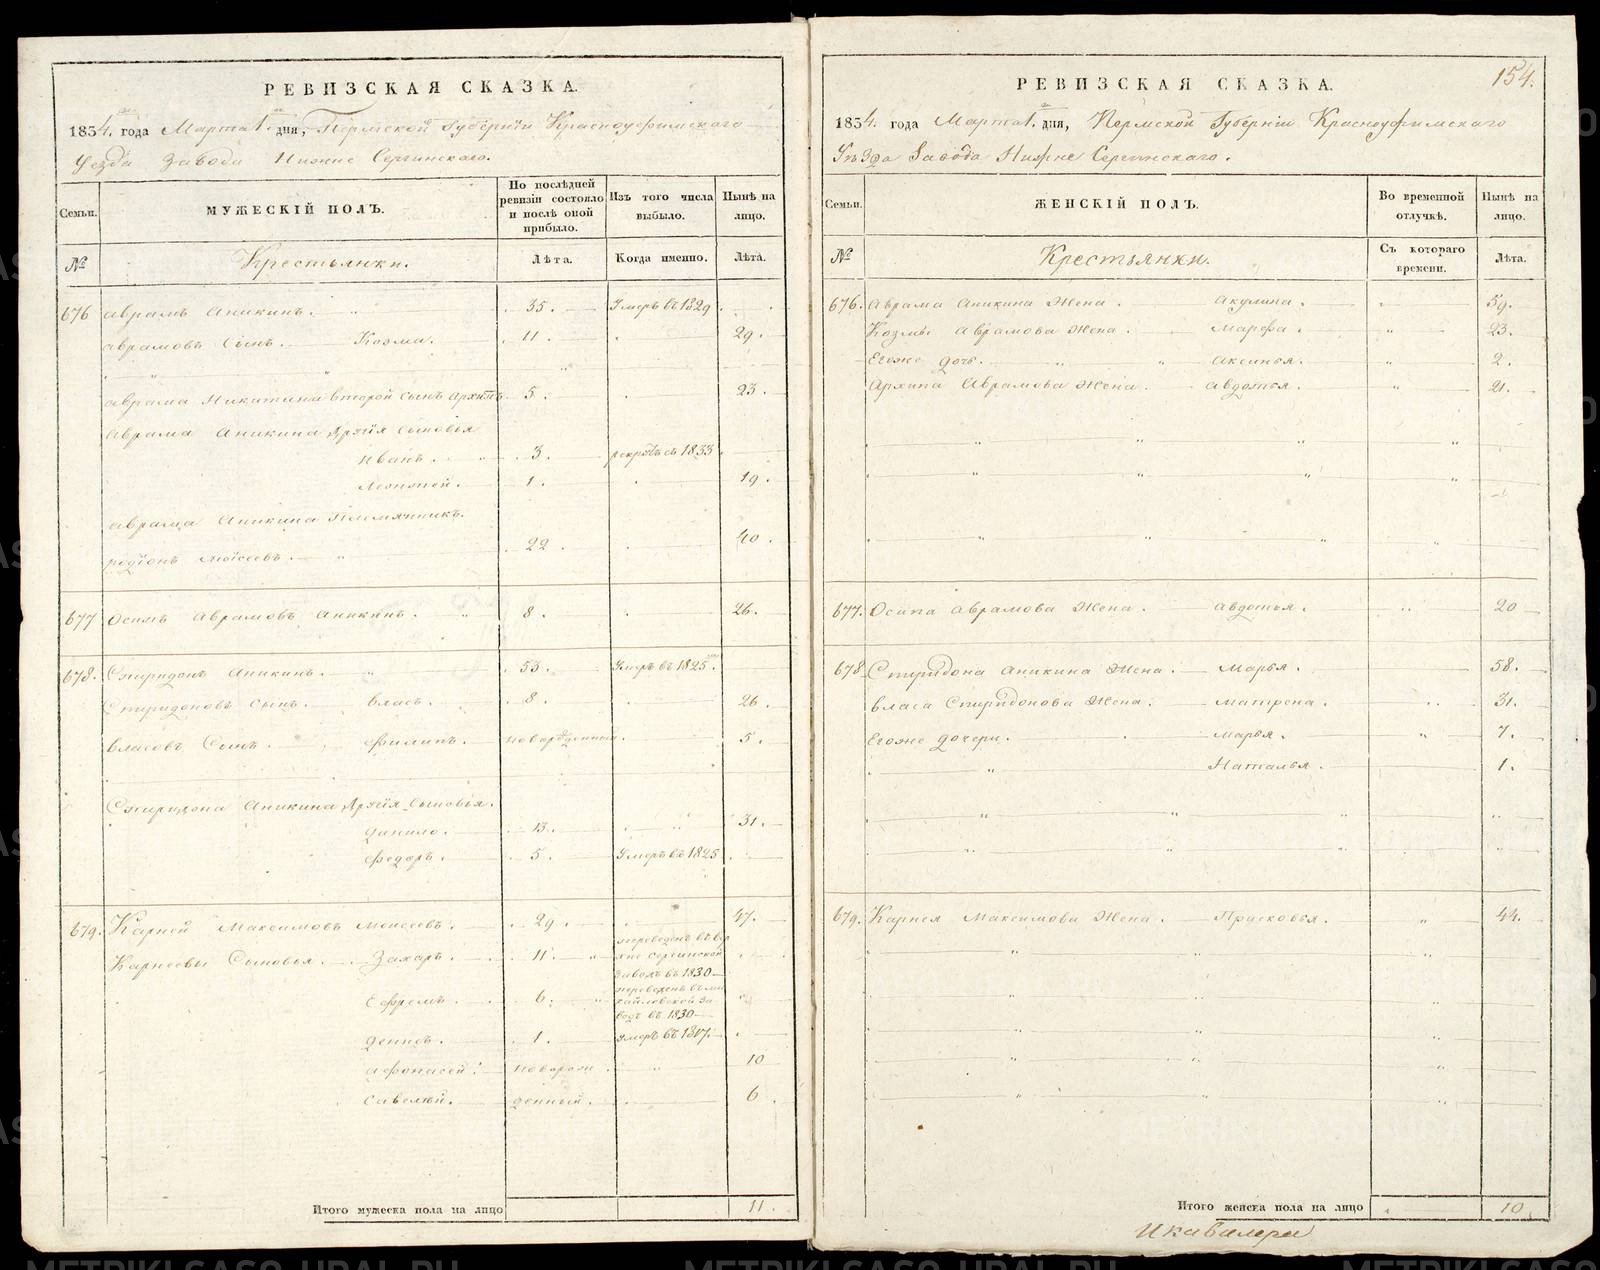 РЕВИЗСКАЯ СКАЗКА.
1834. года Марта 1. дня, Пермской Губернiи Красноуфимского
Уезда Завода Нижне Сергинскаго.
Семьи.
МУЖЕСКІЙ ПОЛЪ.
По послѣдней ревизіи состояло и послѣ оной прибыло.
Изъ того числа выбыло.
Нынѣ на лицо.
№
Крестьянки.
Лѣта.
Когда именно.
Лѣта.
676 аврамъ аникинъ. 35. Умеръ въ 1829
аврамовъ Сынъ. Козма. 11. 29.
аврама Никитина второй сынъ архипъ 5. 23.
аврама аникина другiя сыновья
иванъ. 3. рекрутъ съ 1833
леонтей. 1. 19.
аврама аникина Племянникъ.
родiонъ моiсеевъ. 22. 40.
677 Осипъ аврамовъ аникинъ. 8. 26.
678. Спиридонъ аникинъ. 53. Умеръ въ 1825.
Спиридоновъ сынъ. власъ. 8. 26.
власовъ Сынъ. филипъ. новорожденный. 5.
Спиридона аникина другiя сыновья.
данило. 13. 31.
федоръ. 5. Умеръ въ 1825
679. Карней Максимовъ моисеевъ. 29. 47.
Карнеевы Сыновья. Захаръ. 11. переведенъ въ верхне сергинской заводъ въ 1830
Ефремъ. 6. переведенъ въ михайловской заводъ въ 1830
денисъ. 1. умеръ въ 1817.
афонасей. новорож 10
савелей. денныи. 6.
Итого мужеска пола на лицо 11.
154.
РЕВИЗСКАЯ СКАЗКА.
1834. года Марта 1. дня, Пермской Губернiи Красноуфимскаго
Уѣзда Завода Нижне Сергинскаго.
Семьи.
ЖЕНСКІЙ ПОЛЪ.
Во временной отлучкѣ.
Нынѣ на лицо.
№
Крестьянки.
Съ котораго времени.
Лѣта.
676. аврама аникина жена. акулина. 59.
Козмы аврамова жена. марфа. 23.
Егоже дочь. аксинья. 2.
архипа аврамова жена. авдотья. 21.
677. Осипа аврамова жена. авдотья. 20
678 Спиридона аникина жена. Марья. 58.
власа Спиридонова жена. матрена. 31.
Егоже дочери. марья. 7.
Наталья. 1.
679. Карнея Максимова жена. Прасковья. 44.
Итого женска пола на лицо 10
METRIKI.GASO-URAL.RU
METRIKI.GASO-URAL.RU
METRIKI.GASO-URAL.RU